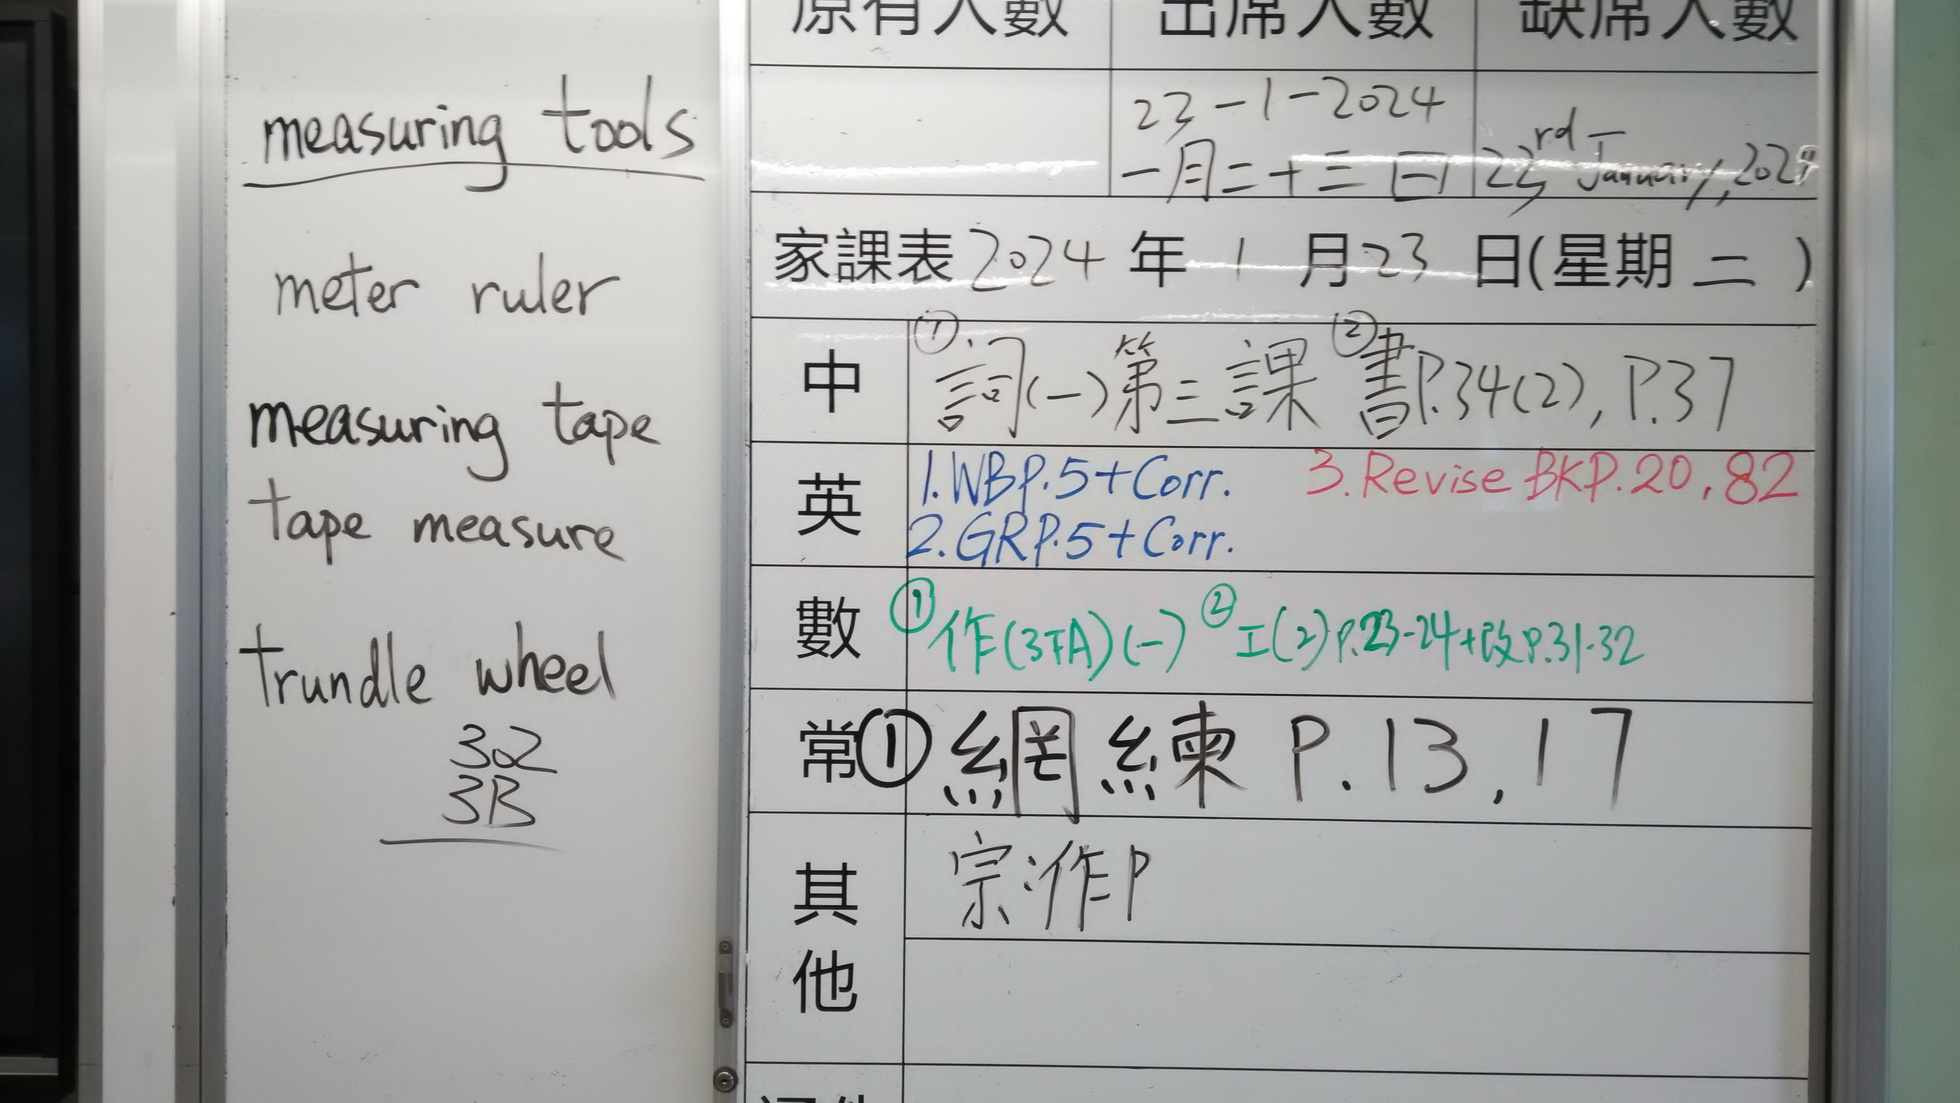 measuring tools
meter ruler
measuring tape
tape measure
trundle wheel
32
3B
原有人數 出席人數 缺席人數
23-1-2024
一月二十三日 23rd January, 2024
家課表 2024 年 1 月 23 日(星期 二 )
中 ① 詞(一)第三課 ② 書P.34(2), P.37
英 1.WBP.5+Corr. 3.Revise BKP.20,82
2.GRP.5+Corr.
數 ① 作(3下A)(一) ② 工(2)P.23-24+改P.31-32
常 ① 網練 P.13,17
其他 宗:作P